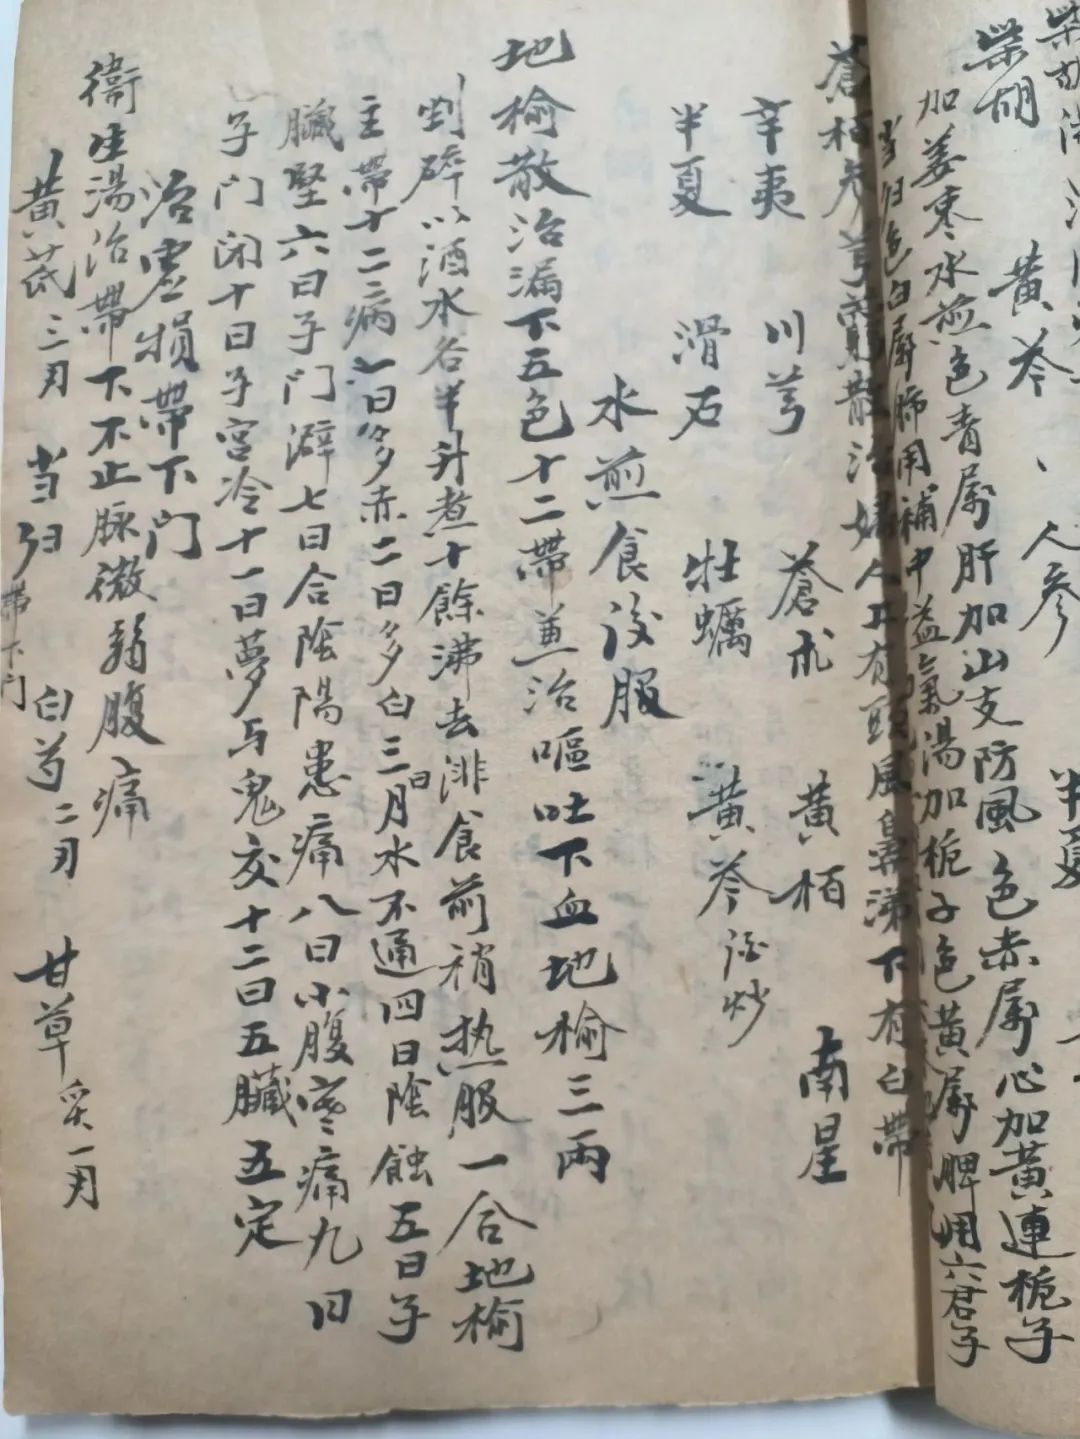 柴胡 黄芩 人參 半夏
加姜枣水煎色青属肝加山支防風色赤属心加黄連栀子
当归色白屬肺用補中益氣湯加栀子色黄属脾用六君子
蒼栢 散治婦人上有頭風鼻涕下有白帶
辛夷 川芎 蒼朮 黄栢 南星
半夏 滑石 牡蠣 黄芩 炒
水煎食後服
地榆散治漏下五色十二帶兼治嘔吐下血地榆三兩
剉碎以酒水各半升煮十餘沸去滓食前稍热服一合地榆
主帶十二病一曰多赤二曰多白三曰月水不通四曰陰蝕五曰子
臟堅六曰子門澼七曰合陰陽患痛八曰小腹寒痛九曰
子门闭十曰子宫冷十一曰夢与鬼交十二曰五臟五定
治虛損帶下门
衛生湯治帶下不止脉微弱腹痛
黄芪三刄 当归 白芍二刄 甘草炙一刄
帶下门